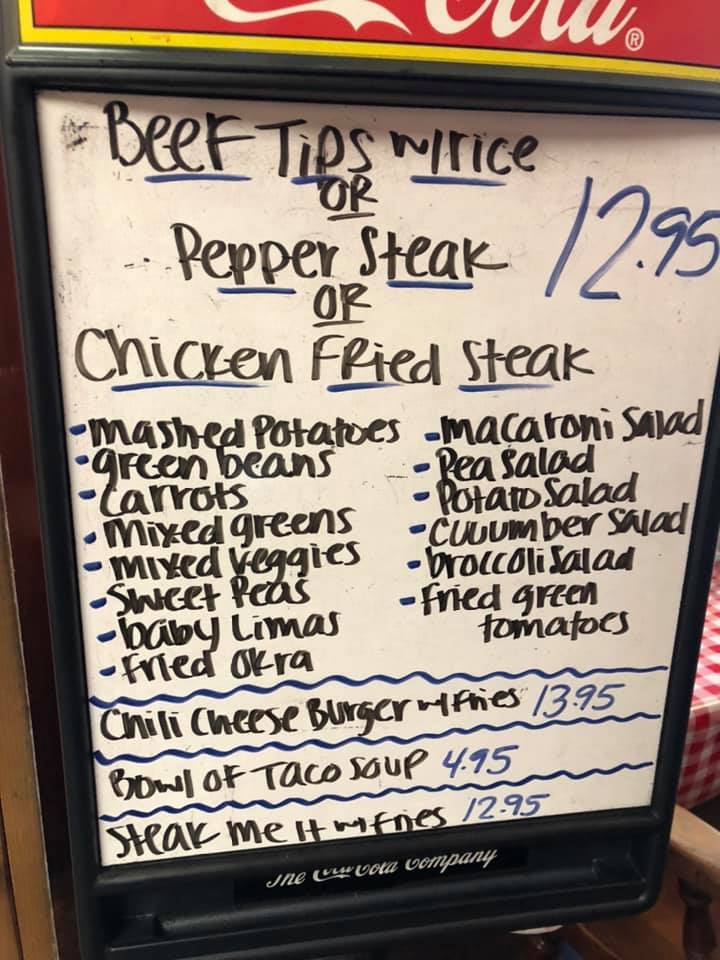 Cola®
Beef Tips w/rice
OR
Pepper Steak
12.95
OR
Chicken Fried Steak
-mashed Potatoes
-green beans
-Carrots
-mixed greens
-mixed veggies
-Sweet Peas
-baby Limas
-fried Okra
-macaroni Salad
-Pea Salad
-Potato Salad
-cucumber Salad
-broccoli Salad
-fried green
tomatoes
Chili Cheese Burger w/fries 13.95
Bowl of Taco Soup 4.95
Steak Me It w/fries 12.95
The Coca-Cola Company